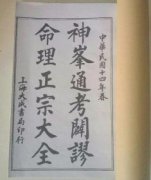 中華民國十四年春
神峯通考闢謬
命理正宗大全
上海大成書局印行